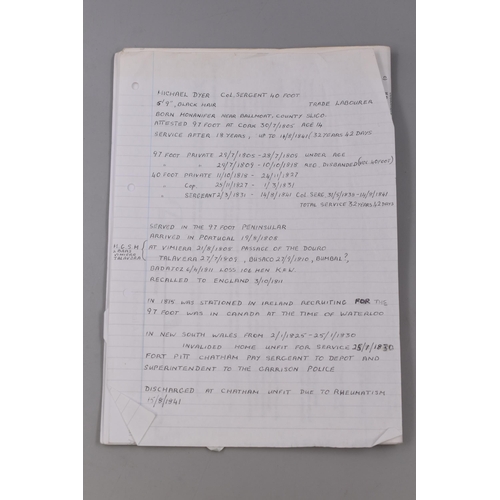 MICHAEL DYER COL. SERGENT 40 FOOT
5'9", BLACK HAIR TRADE LABOURER
BORN MONANIFER NEAR BALLMOAT, COUNTY SLIGO
ATTESTED 97 FOOT AT CORK 30/7/1805 AGE 14
SERVICE AFTER 18 YEARS, UP TO 14/8/1841 / 32 YEARS 42 DAYS
97 FOOT PRIVATE 29/7/1805 - 28/7/1808 UNDER AGE
" " 29/7/1809 - 10/10/1818 AGE DISBANDED
40 FOOT PRIVATE 11/10/1818 - 24/11/1827
" CPL 25/11/1827 - 1/3/1831
" SERGEANT 2/3/1831 - 14/8/1841 COL. SERG.
TOTAL SERVICE 32 YEARS 42 DAYS
SERVED IN THE 97 FOOT PENINSULAR
ARRIVED IN PORTUGAL 19/8/1808
M.G.S.M. 2 BARS VIMIERA TALAVERA
AT VIMIERA 21/8/1808 PASSAGE OF THE DOURO
TALAVERA 27/7/1809, BUSACO 27/9/1810, BUMBAL?,
BADAJOZ 6/4/1811 LOSS 102 MEN K+W.
RECALLED TO ENGLAND 3/10/1811
IN 1815 WAS STATIONED IN IRELAND RECRUITING FOR THE
97 FOOT WAS IN CANADA AT THE TIME OF WATERLOO
IN NEW SOUTH WALES FROM 2/1/1825 - 25/1/1830
INVALIDED HOME UNFIT FOR SERVICE 25/7/1830
FORT PITT CHATHAM PAY SERGEANT TO DEPOT AND
SUPERINTENDENT TO THE GARRISON POLICE
DISCHARGED AT CHATHAM UNFIT DUE TO RHEUMATISM
15/8/1841